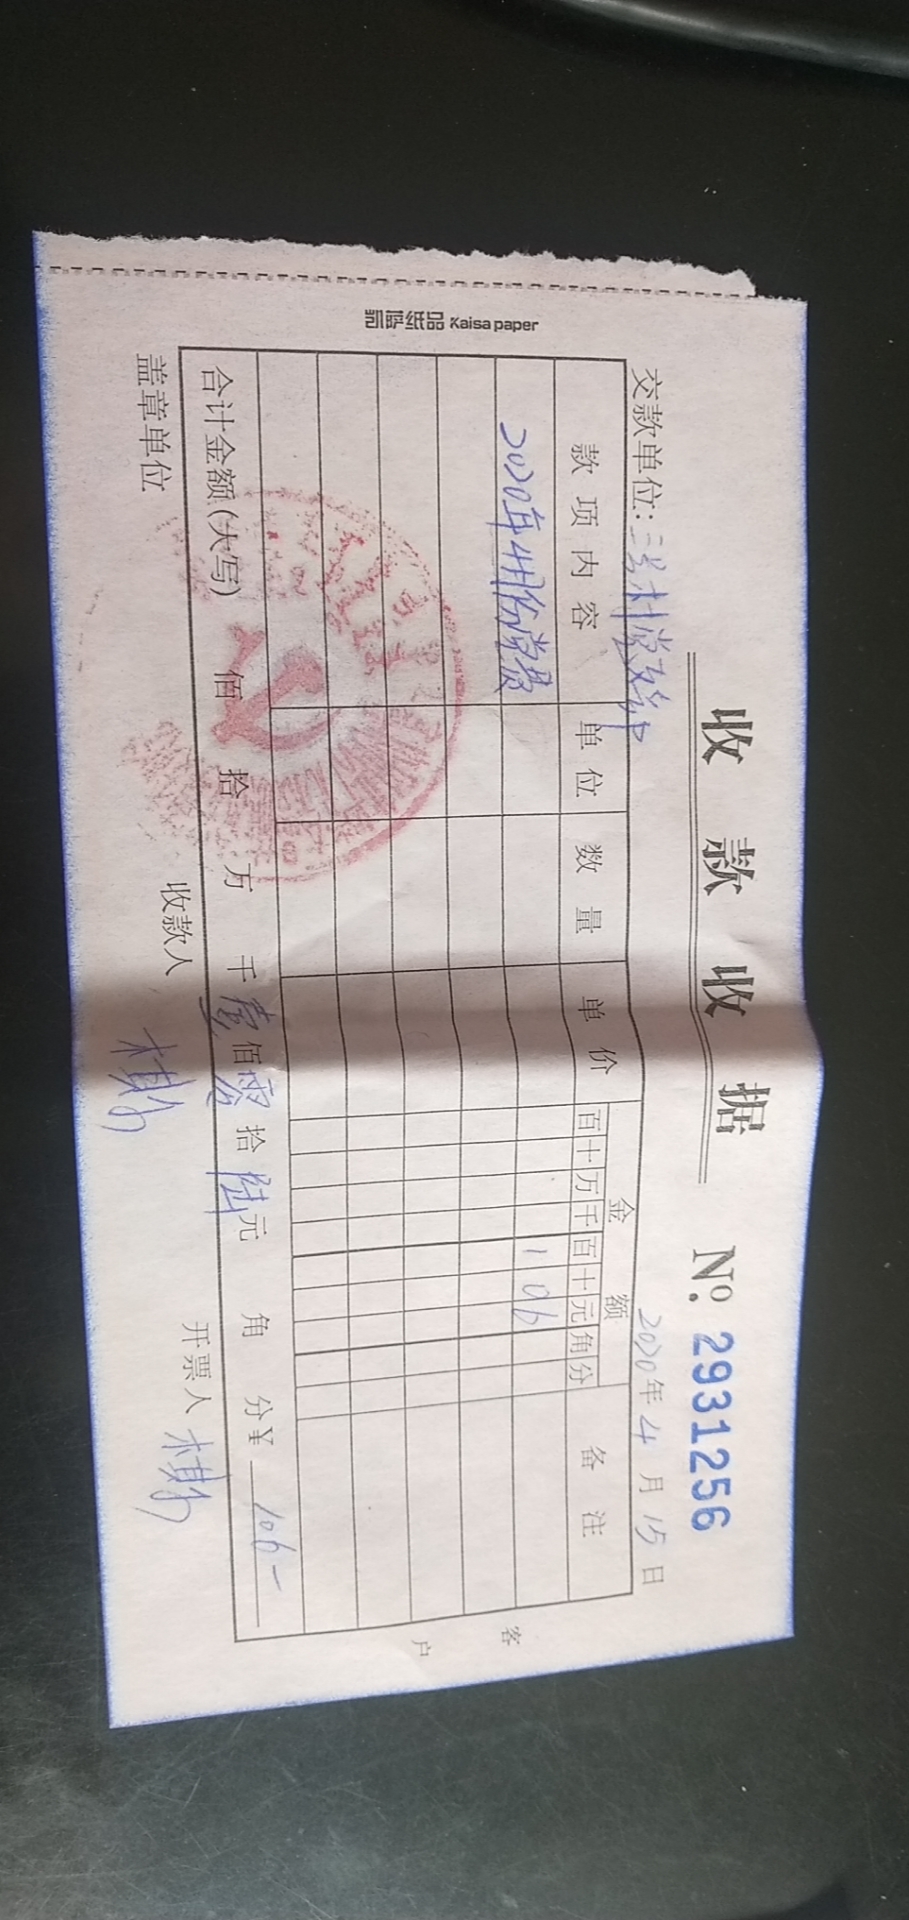 收款收据 №: 2931256
交款单位: 三号村党支部 2020年4月15日
款项内容 单位 数量 单价 金额 备注
百十万千百十元角分
2020年4月份党费 106
合计金额(大写) 佰 拾 万 千 壹佰零拾陆元 角 分¥ 106-
盖章单位 收款人 开票人
客户
凯萨纸品 Kaisa paper